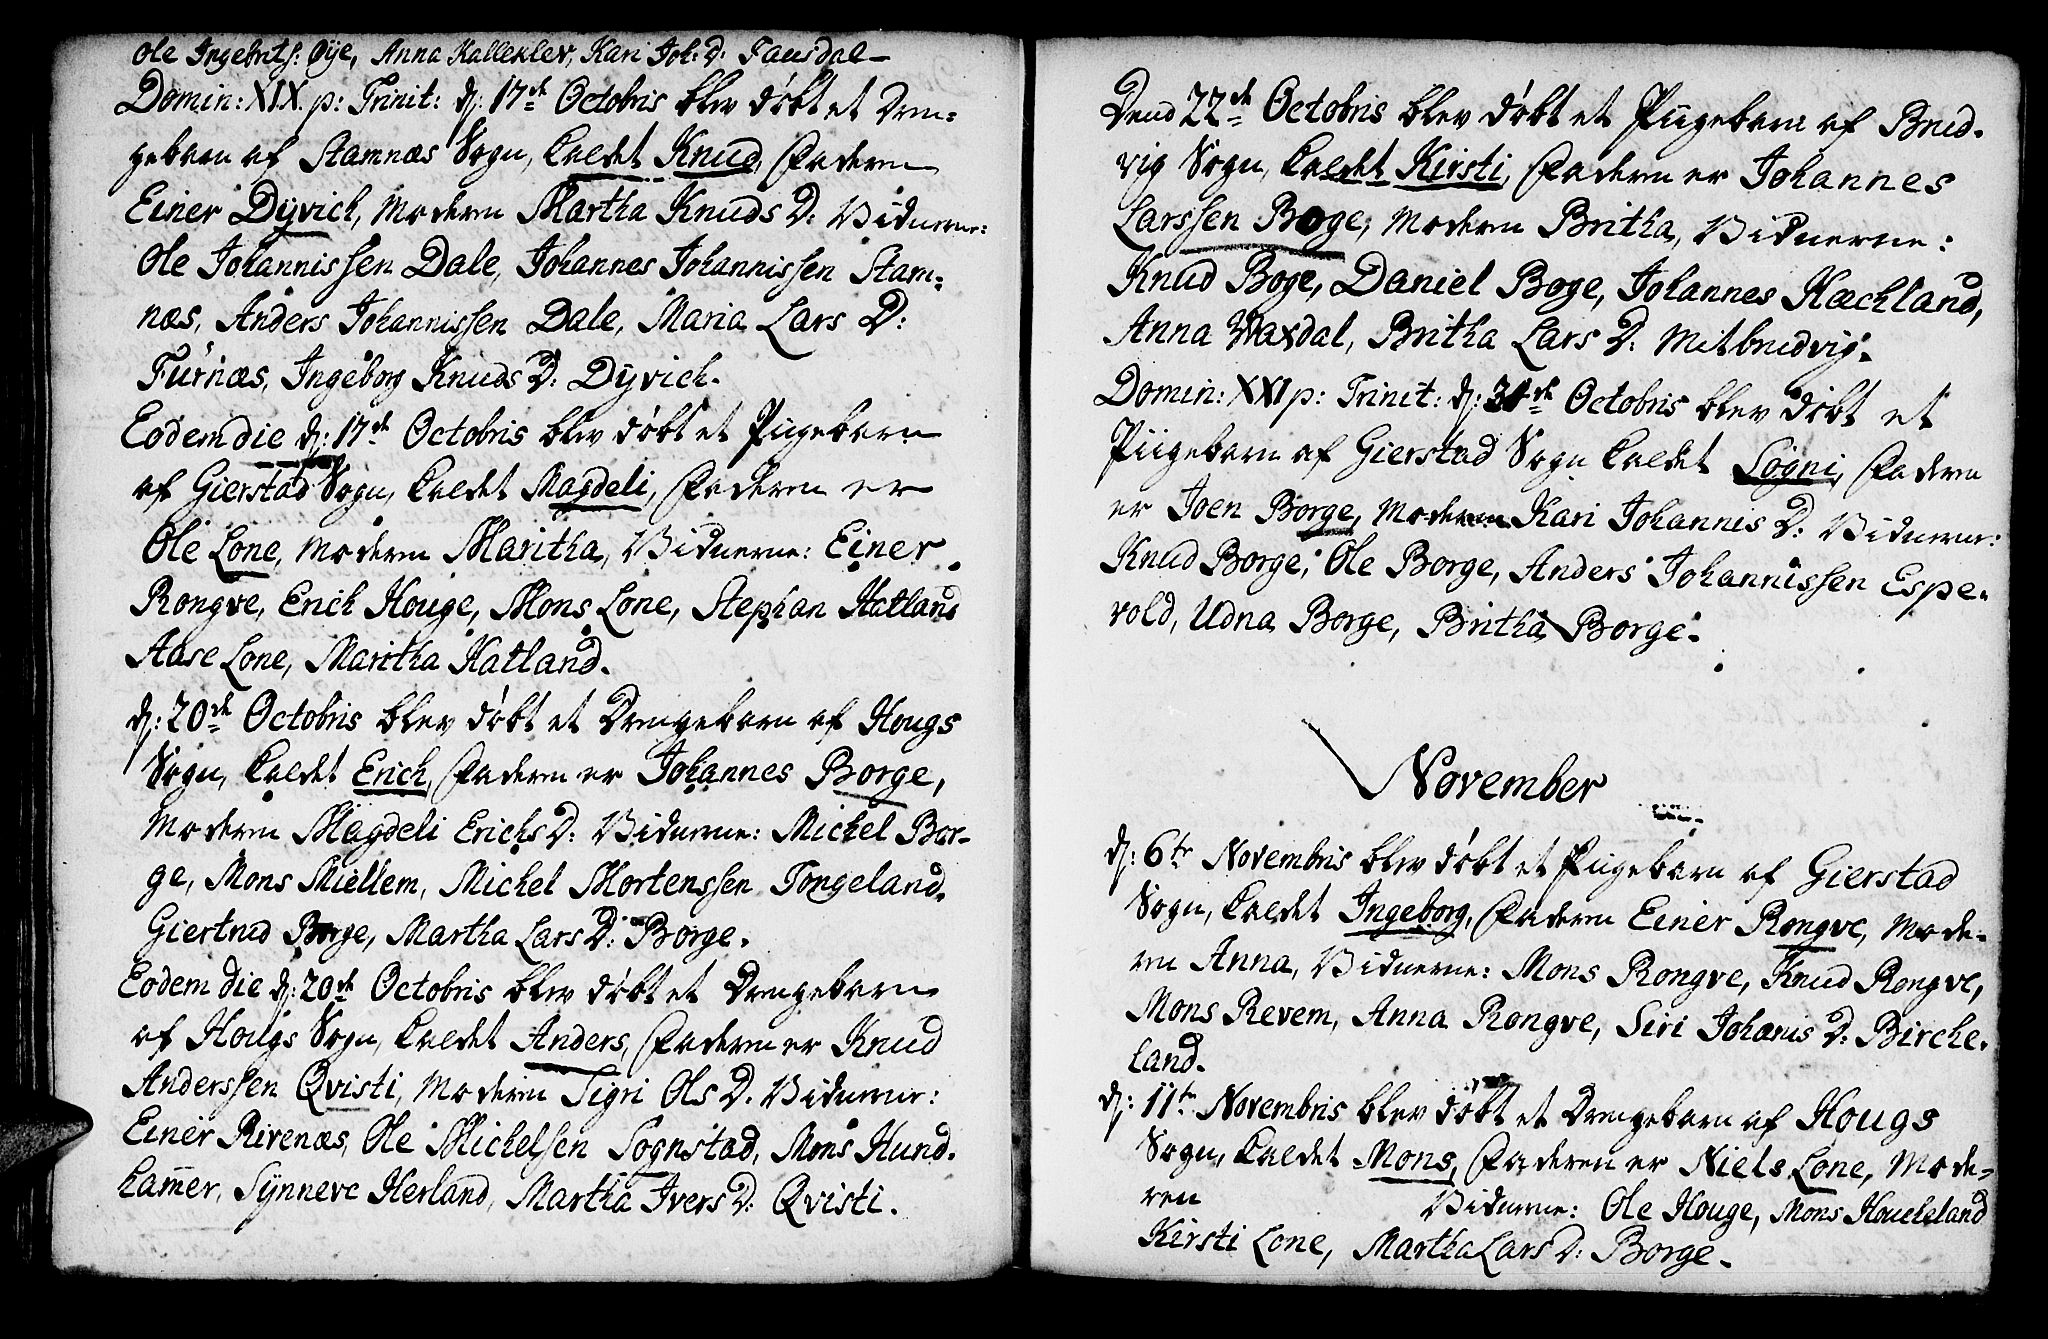 Ole Ingebrits: Øye, Anna Kalleklev, Kari Joh: D: Fausdal
Domin: XIX p: Trinit: d: 17de Octobris blev døbt et Dren-
gebarn af Stamnæs Sogn, kaldet Knud, Faderen
Einer Dyvich, Moderen Martha Knuds D: Vidnerne:
Ole Johannissen Dale, Johannes Johannissen Stam-
næs, Anders Johannissen Dale, Maria Lars D:
Furnæs, Ingeborg Knuds D: Dyvich.
Eodem die d: 17de Octobris blev døbt et Pigebarn
af Gierstad Sogn, kaldet Magdeli, Faderen er
Ole Lone, Moderen Maritha, Vidnerne: Einer
Rongve, Erich Houge, Mons Lone, Stephan Hatland
Aase Lone, Maritha Hatland.
d: 20de Octobris blev døbt et Drengebarn af Hougs
Sogn, kaldet Erich, Faderen er Johannes Borge,
Moderen Magdeli Erichs D: Vidnerne: Michel Bor-
ge, Mons Miellem, Michel Mortenssen Tongeland.
Giertrud Borge, Martha Lars D: Borge.
Eodem die d: 20de Octobris blev døbt et Drengebarn
af Hougs Sogn, kaldet Anders, Faderen er Knud
Anderssen Qvisti, Moderen Sigri Ols D. Vidnerne:
Einer Rivenæs, Ole Michelsen Sognstad, Mons Hund-
hamer, Synneve Herland, Martha Ivers D: Qvisti.
Dend 22de Octobris blev døbt et Pigebarn af Brud-
vig Sogn, kaldet Kirsti, Faderen er Johannes
Larssen Boge, Moderen Britha, Vidnerne:
Knud Boge, Daniel Boge, Johannes Hæchland,
Anna Waxdal, Britha Lars D: Mitbrudvig.
Domin: XXI p: Trinit: d: 31de Octobris blev døbt et
Piigebarn af Gierstad Sogn kaldet Sogni, Faderen
er Joen Borge, Moderen Kari Johannis D: Vidnerne:
Knud Borge, Ole Borge, Anders Johannissen Espe-
vold, Udna Borge, Britha Borge.
November
d: 6te Novembris blev døbt et Pigebarn af Gierstad
Sogn, kaldet Ingeborg, Faderen Einer Rongve, Mode-
ren Anna, Vidnerne: Mons Rongve, Knud Rongve,
Mons Revem, Anna Rongve, Siri Johanis D: Birche-
land.
d: 11te Novembris blev døbt et Drengebarn af Hougs
Sogn, kaldet Mons, Faderen er Niels Lone, Mode-
ren Vidnerne: Ole Houge, Mons Houcheland
Kirsti Lone, Martha Lars D: Borge.